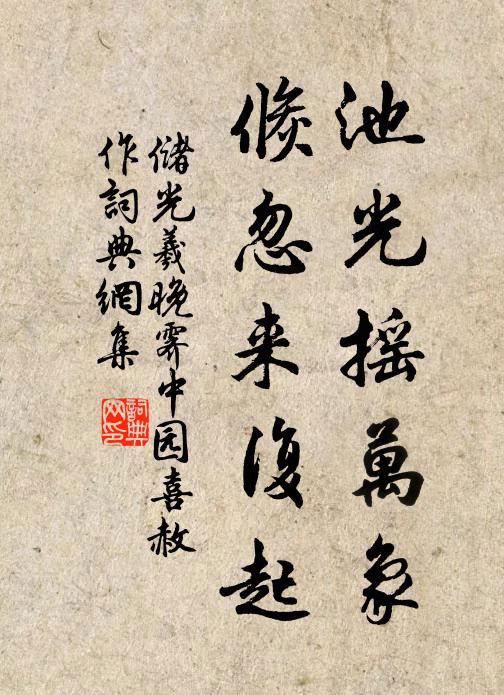 池光摇萬象
倐忽来復起
储光羲晚霁中园喜赦
作詞典網集
詞典网印